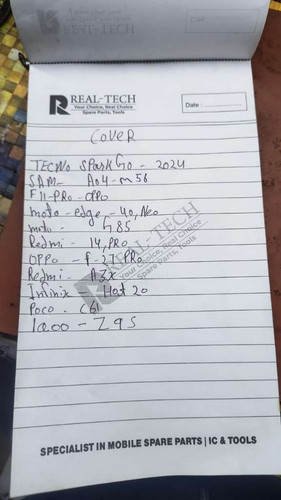 REAL-TECH
Your Choice, Real Choice
Spare Parts, Tools
Date :
COVER
TECNO SPark Go - 2024
SAM - A04 - m 56
F11-PRo - OPPO
moto - edge - 40, Neo
moto - G85
Redmi - 14, PRo
OPPO - F-27 PRo
Redmi - A3x
Infinix - Hot 20
Poco - C61
IQOO - Z9S
REAL-TECH
Your Choice, Real Choice
Spare Parts, Tools
SPECIALIST IN MOBILE SPARE PARTS | IC & TOOLS